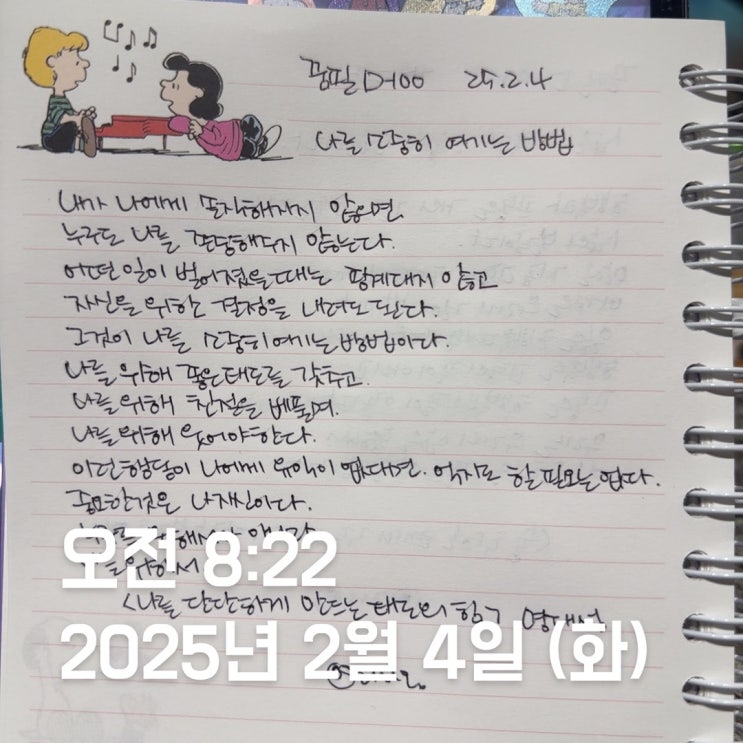 꿈필 D-100 25.2.4
나를 소중히 여기는 방법
내가 나에게 솔직해지지 않으면
누구도 나를 존중해주지 않는다.
어떤 일이 벌어졌을 때는 핑계대지 않고
자신을 위한 결정을 내려도 된다.
그것이 나를 소중히 여기는 방법이다.
나를 위해 좋은 태도를 갖추고.
나를 위해 친절을 베풀며.
나를 위해 웃어야 한다.
이런 행동이 나에게 유익이 없다면. 억지로 할 필요는 없다.
중요한것은 나 자신이다.
오전 8:22
<나를 단단하게 만드는 태도의 향기
2025년 2월 4일 (화)